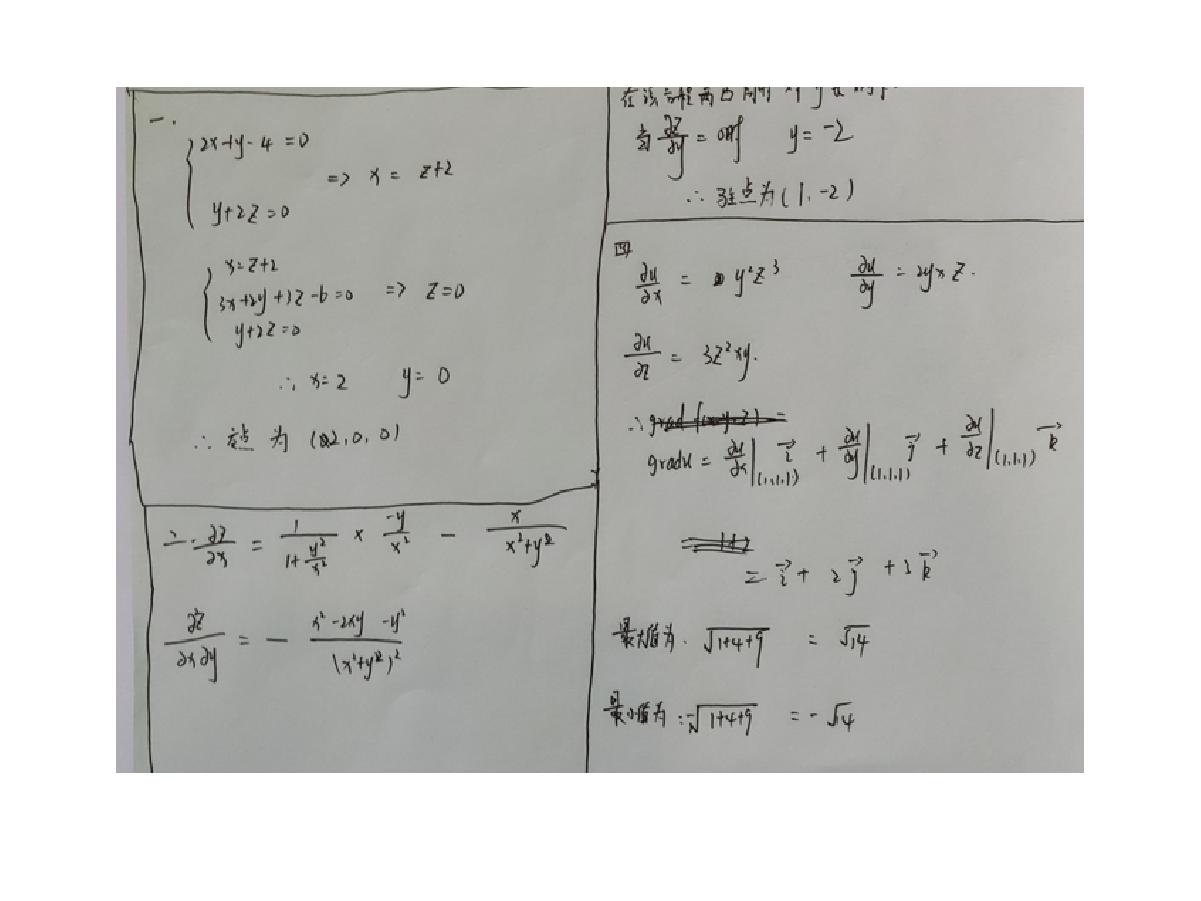 一.
2x+y-4=0
=> x = z+2
y+2z=0
x=z+2
3x+2y+3z-6=0 => z=0
y+2z=0
∴ x=2 y=0
∴ 定点 为 (2,0,0)
二. ∂z/∂x = 1/(1+y²/x²) × -y/x² - x/(x²+y²)
∂²z/∂x∂y = - (x²-2xy-y²)/(x²+y²)²
当 ∂z/∂y = 0时 y=-2
∴ 驻点为(1,-2)
四
∂u/∂x = y²z³ ∂u/∂y = 2yxz.
∂u/∂z = 3z²xy.
∴
gradu = ∂u/∂x|(1,1,1) i + ∂u/∂y|(1,1,1) j + ∂u/∂z|(1,1,1) k
= i + 2j + 3k
最大值为. √(1+4+9) = √14
最小值为: -√(1+4+9) = -√14